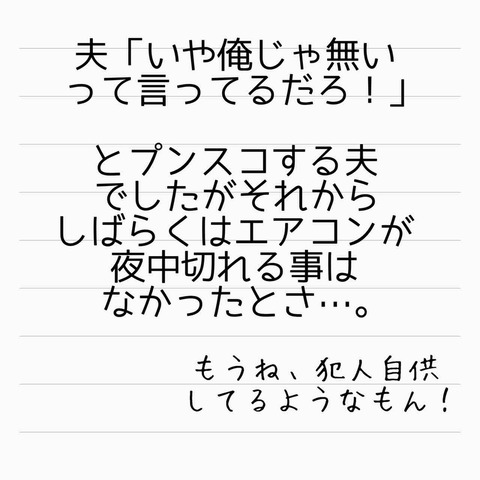 夫「いや俺じゃ無い
って言ってるだろ！」
とプンスコする夫
でしたがそれから
しばらくはエアコンが
夜中切れる事は
なかったとさ…。
もうね、犯人自供
してるようなもん！